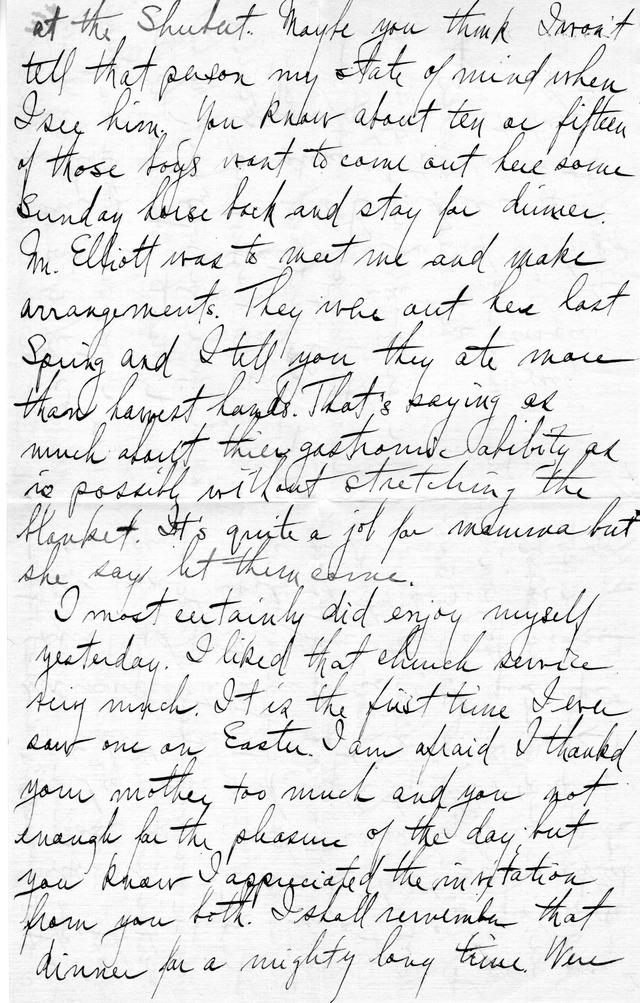 at the Shubert. Maybe you think I won't
tell that person my state of mind when
I see him. You know about ten or fifteen
of those boys want to come out here some
Sunday horse back and stay for dinner.
Mr. Elliott was to meet me and make
arrangements. They were out here last
Spring and I tell you they ate more
than harvest hands. That's saying as
much about their gastronomic ability as
is possible without stretching the
blanket. It's quite a job for mamma but
she says let them come.
I most certainly did enjoy myself
yesterday. I liked that church service
very much. It is the first time I ever
saw one on Easter. I am afraid I thanked
your mother too much and you not
enough for the pleasure of the day; but
you know I appreciated the invitation
from you both. I shall remember that
dinner for a mighty long time. Were